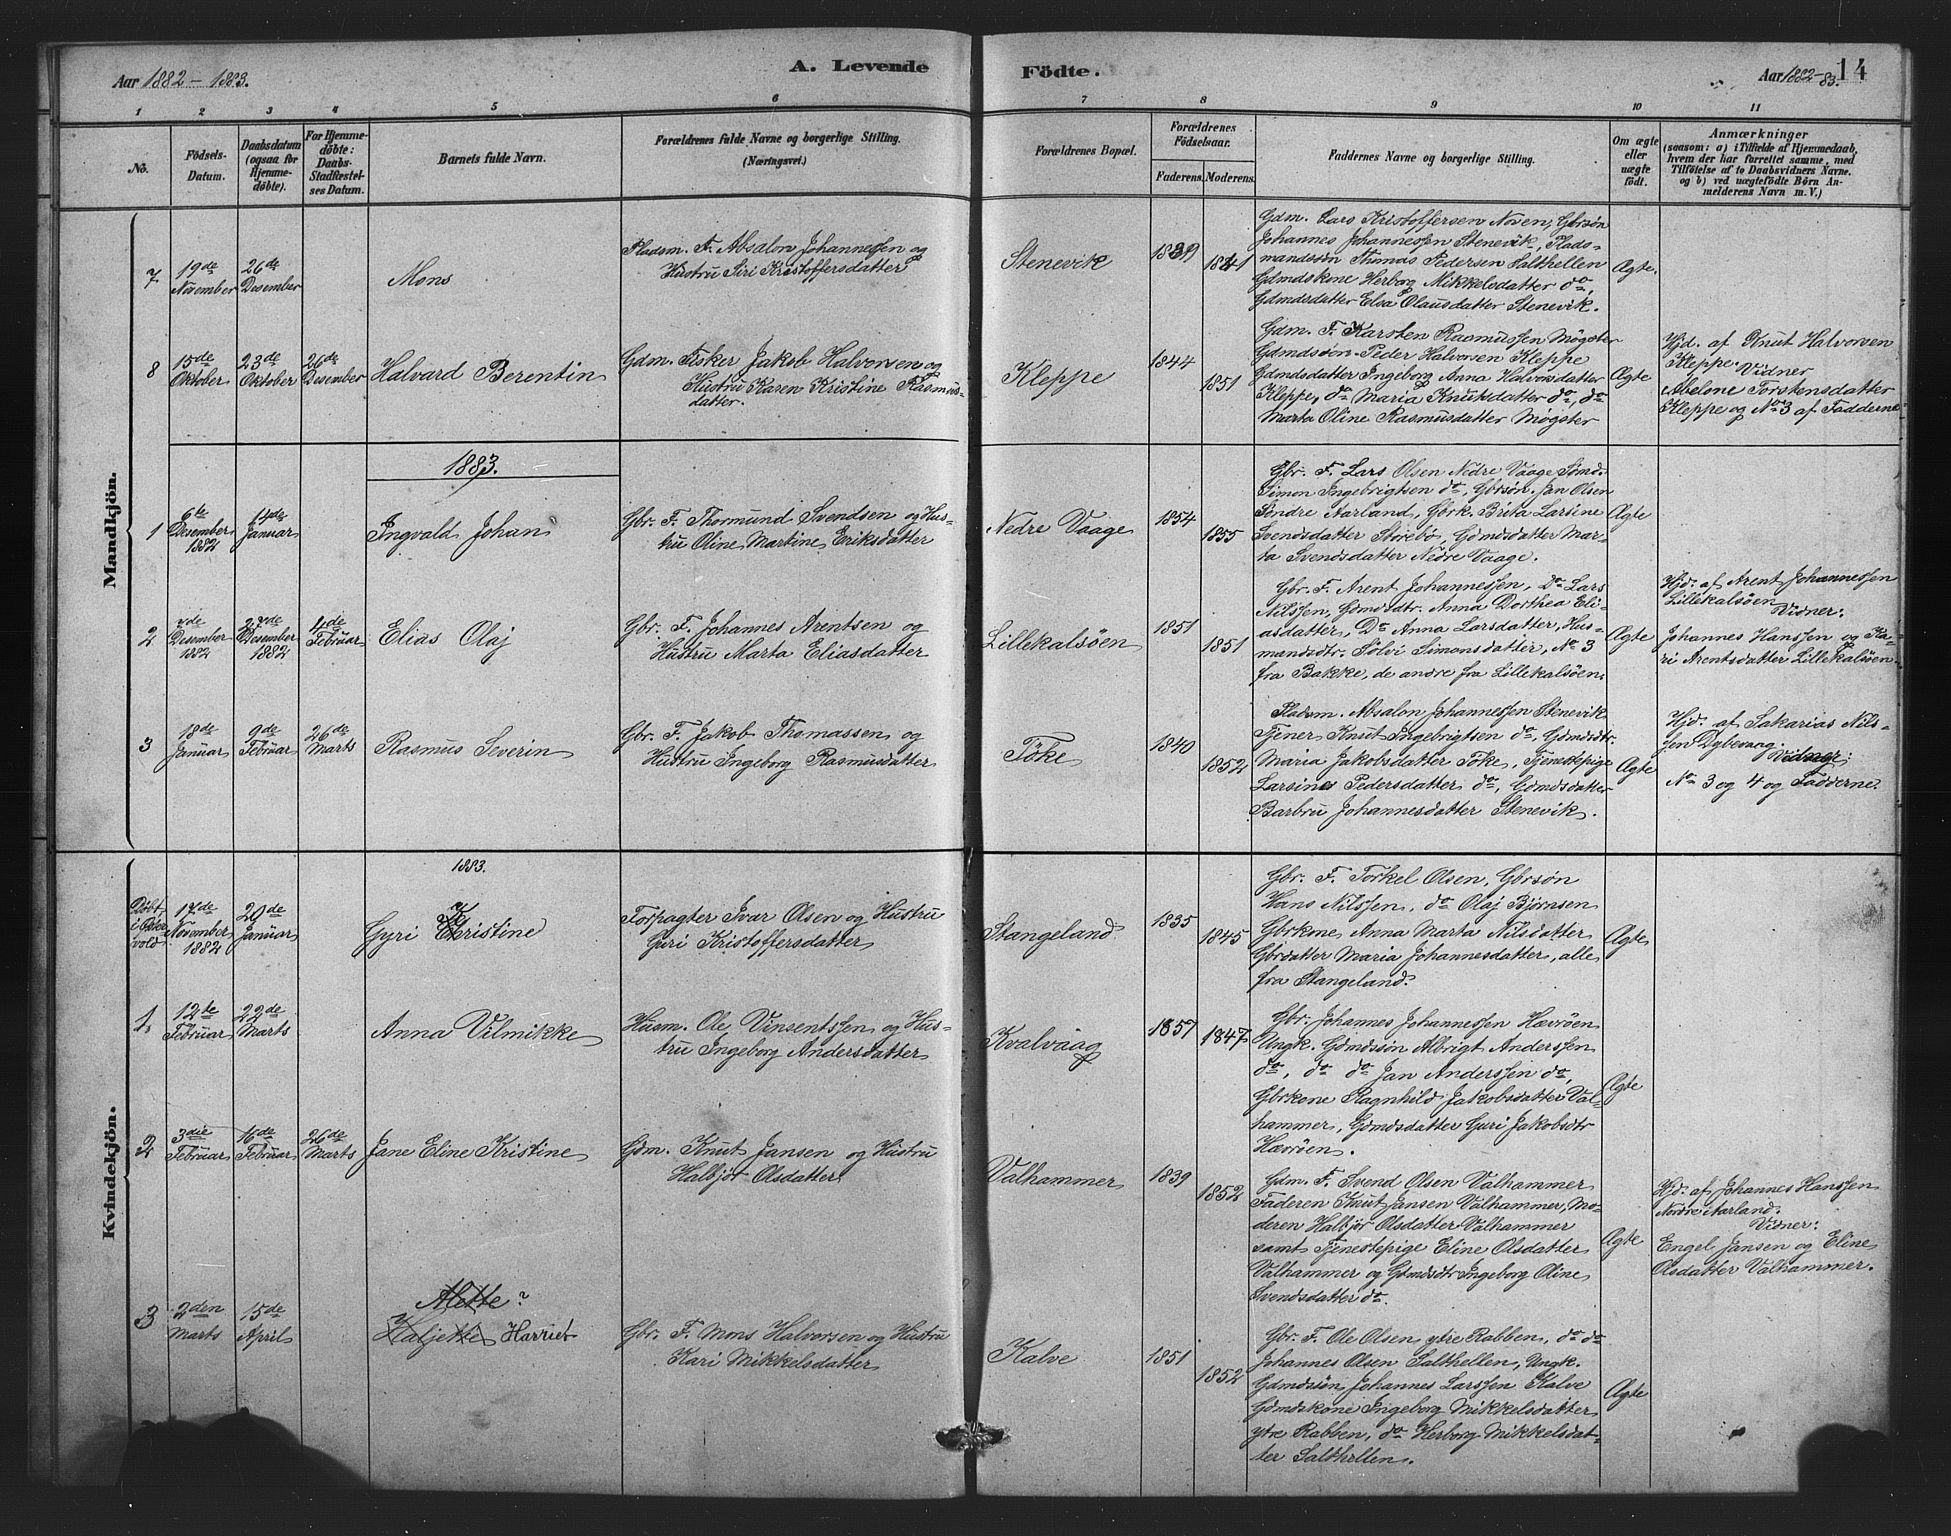 Aar 1882–1883.
A. Levende Födte.
Aar 1882–83.
14
1 2 3 4 5 6 7 8 9 10 11
No.
Födsels-Datum.
Daabsdatum (ogsaa for Hjemme-döbte).
For Hjemme-döbte: Daabs-Stadfæstel-ses Datum.
Barnets fulde Navn.
Forældrenes fulde Navne og borgerlige Stilling.
(Næringsvei.)
Forældrenes Bopæl.
Forældrenes Födselsaar.
Faderens. Moderens.
Faddernes Navne og borgerlige Stilling.
Om ægte eller uægte födt.
Anmærkninger
(saasom: a) i Tilfælde af Hjemmedaab,
hvem der har forrettet samme, med
Tilföielse af to Daabsvidners Navne.
og b) ved uægtefödte Börn An-
melderens Navn m. V.)
Mandkjön.
7
19de November
26de Desember
Mons
Pladsm. F. Absalon Johannessen og
Hustru Siri Kristoffersdatter
Stenevik
1839
1841
Gdm. Lars Kristoffersen Noven, Gbrsön
Johannes Johannessen Stenevik, Plads-
mandssön Thomas Pedersen Salthellen
Gdmdskone Herborg Mikkelsdatter do,
Gdmdsdatter Elsa Olausdatter Stenevik.
Ægte.
8
15de Oktober
23de Oktober
26de Desember
Halvard Berentin
Gdm. Fisker Jakob Halvorsen og
Hustru Karen Kristine Rasmus-
datter.
Kleppe
1844
1851
Gdm. F. Karsten Rasmussen Møgster
Gdmdssön Peder Halvorsen Kleppe
Gdmdsdatter Ingeborg Anna Halvorsdatter
Kleppe, do Maria Knutsdatter do, do
Marta Oline Rasmusdatter Møgster
Ægte
Hjd. af Knut Halvorsen
Kleppe. Vidner
Abelone Torstensdatter
Kleppe og No 3 af Fadderne
1883.
1
6te Desember 1882
14de Januar
Ingvald Johan
Gbr. F. Thormund Svendsen og Hus-
tru Oline Martine Eriksdatter
Nedre Vaage
1854
1855
Gbr. F. Lars Olsen Nedre Vaage Sömd.
Simon Ingebrigtsen do, Gbrsön. Jan Olsen
Söndre Aarland, Gbrk. Brita Larsine
Svendsdatter Storebö, Gdmdsdatter Mar-
ta Svendsdatter Nedre Vaage.
Ægte
2
Desember 1882
Desember 1882
4de Februar
Elias Olaj
Gbr. F. Johannes Arentsen og
Hustru Marta Eliasdatter
Lillekalsöen
1851
1851
Gbr. F. Arent Johannessen, Do Lars
Nilssen, Gdmdsdtr. Anna Dorthea Eli-
asdatter, Do Anna Larsdatter, Hus-
mandsdtr. Sölvi Simonsdatter, No 3
fra Bakke, de andre fra Lillekalsöen.
Ægte
Hjd. af Arent Johannessen
Lillekalsöen
Vidner:
Johannes Hanssen og Ka-
ri Arentsdatter Lillekalsöen.
3
18de Januar
9de Februar
26de Marts
Rasmus Severin
Gbr. F. Jakob Thomassen og
Hustru Ingeborg Rasmusdatter
Töke
1840
1852
Pladsm. Absalon Johannessen Stenevik
Tjener Knut Ingebrigtsen do, Gdmdsdtr.
Maria Jakobsdatter Töke, Tjenestepige
Larsine Pedersdatter do, Gdmdsdatter
Barbru Johannesdatter Stenevik.
Ægte
Hjd. af Sakarias Nils-
sen Dybevaag.
Vidner:
No 3 og 4 og Fadderne.
Kvindekjön.
1883.
Döbt i Oster-vold
17de November 1882
20de Januar
Gyri Kristine
Forpagter Ivar Olsen og Hustru
Guri Kristoffersdatter
Stangeland
1835
1845
Gbr. F. Torkel Olsen, Gbrsön
Hans Nilssen, do Olaj Björnsen
Gbrkone Anna Marta Nilsdatter
Gbrdatter Maria Johannesdatter, alle
fra Stangeland.
Ægte
1.
12te Februar
22de Marts
Anna Vilmikke
Husm. Ole Vinsentssen og Hus-
tru Ingeborg Andersdatter
Kvalvaag
1857
1847
Gbr. Johannes Johannessen Hævröen
Ungk. Gdmdssön Albrigt Anderssen
do, do do Jan Anderssen do,
Gbrkone Ragnhild Jakobsdatter Val-
hammer, Gdmdsdatter Guri Jakobsdtr
Hævröen.
Ægte
2
3die Februar
16de Februar
26de Marts
Jane Eline Kristine
Gdm. Knut Jansen og Hustru
Halbjör Olsdatter
Valhammer
1839
1852
Gdm. F. Svend Olsen Valhammer
Faderen Knut Jansen Valhammer, Mo-
deren Halbjör Olsdatter Valhammer
samt Tjenestepige Eline Olsdatter
Valhammer og Gdmdsdtr Ingeborg Oline
Svendsdatter do.
Ægte
Hjd: af Johannes Hanssen
Nordre Aarland.
Vidner:
Engel Jansen og Eline
Olsdatter Valhammer.
3
2den Marts
15de April
Alette?
Kaljette Harriet
Gbr. F. Mons Halvorsen og Hustru
Kari Mikkelsdatter
Kalve
1851
1852
Gbr. F. Ole Olsen ytre Rabben, do do
Johannes Olsen Salthellen, Ungk.
Gdmdssön Johannes Larssen Kalve
Gdmdskone Ingeborg Mikkelsdatter
ytre Rabben, do Herborg Mikkelsdat-
ter Salthellen.
Ægte